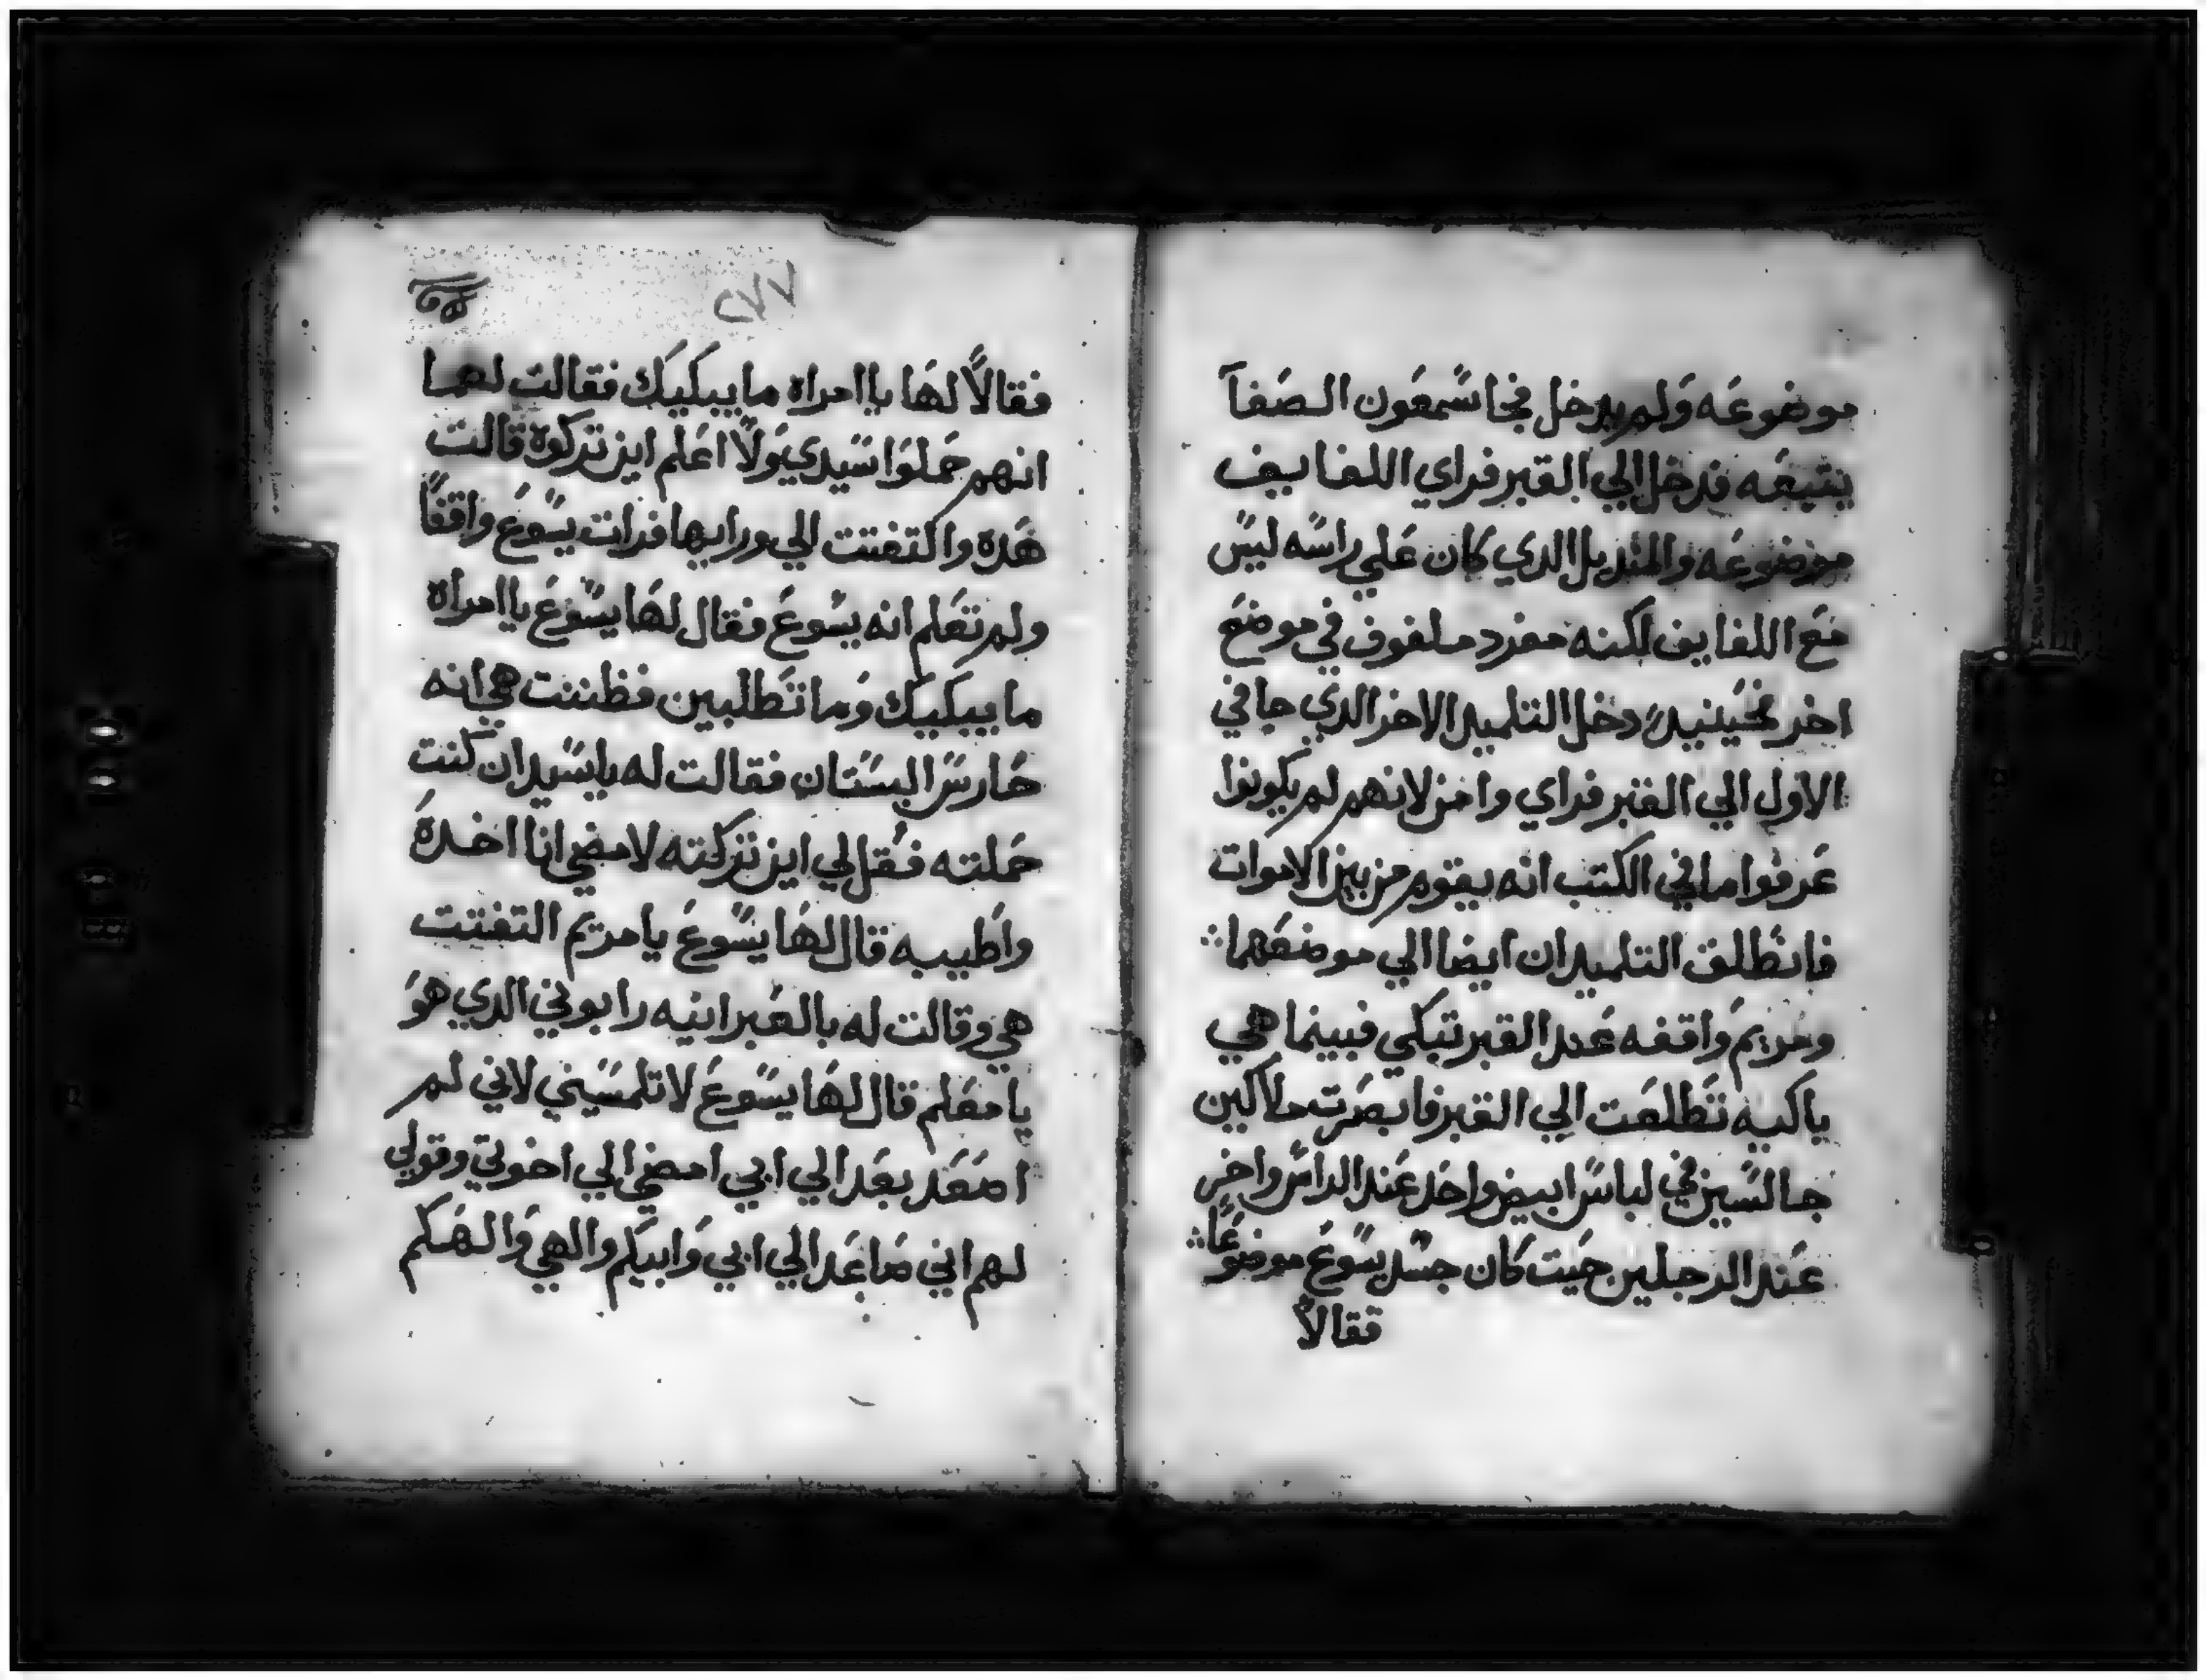 موضوعَه وَلم يدخل فجا سمعَون الصَفاَ
يتبعَه فدخل الي القبر فراي اللفايف
موضوعَه والمنديل الدي كان عَلي راسه ليس
مَع اللفايف لكنه مفرد ملفوف في موضعَ
اخر فحَينيدٍ دخل التلميد الاخر الدي جا في
الاول الي القبر فراي وامن لانهم لم يكونوا
عَرفوا ما في الكتب انه يقوم من بين الاموات
فانطَلق التلميدان ايضا الي موضعَهما ∴
ومريم وَاقفه عَند القبر تبكي فبينما هي
باكيه تطَلعَت الي القبر فابصَرت ملاكين
جالسين في لباس ابيض واحَد عَند الراس واخر
عَند الرجلين حَيت كان جسد يسوعَ موضوعًا ∴
فقالاَ
٢٧٧
فقالاً لهَا ياامراه ما يبكيك فقالت لهما
انهم حَملوَا سَيدي وَلا اعَلم اين تركوه قالت
هَده والتفتت الي ورايها فرات يسوعَ واقفًا
ولم تعَلم انه يسوعَ فقال لهَا يسوعَ ياامراه
ما يبكيك وَما تطَلبين فظننت هي انه
حَارس البستان فقالت له ياسيد ان كنت
حَملته فقل لي اين تركته لامضي انا اخدهَ
واطَيبه قال لهَا يسوعَ يا مريم التفتت
هي وقالت له بالعَبرانيه رابوني الدي هوَ
يا معَلم قال لهَا يسوعَ لا تلمسَيني لاني لم
اصَعَد بعَد الي ابي امضي الي اخوتي وقولي
لهم اني صَاعَد الي ابي وَابيكم والهي وَالهكم